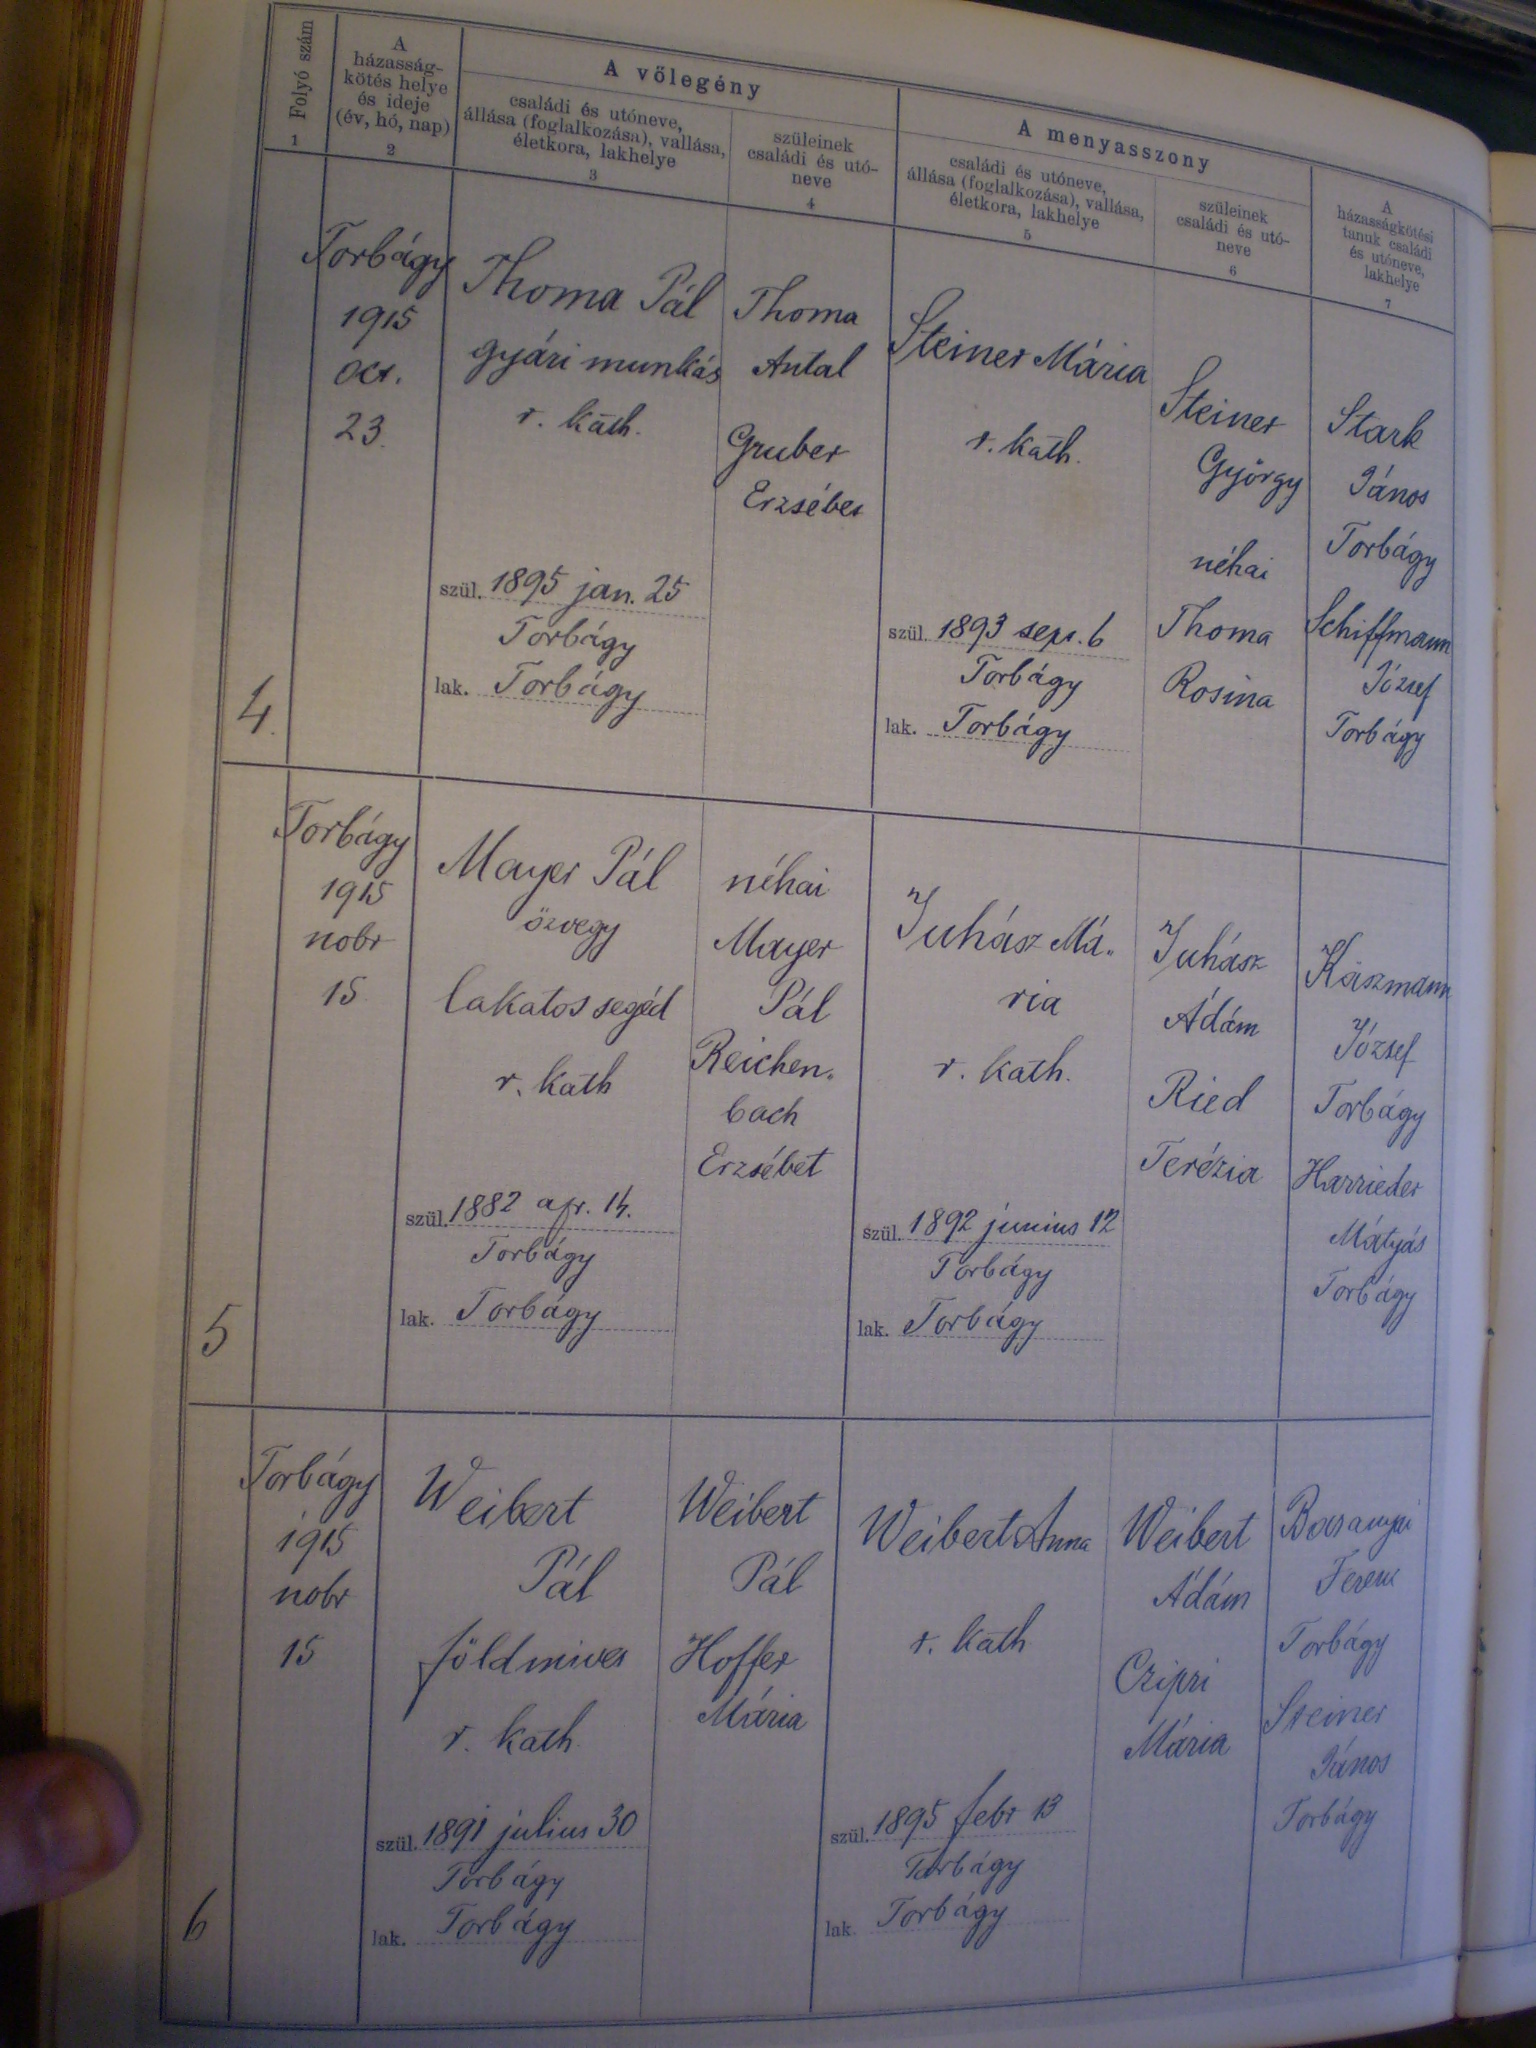 Folyó szám
1
A
házasság-
kötés helye
és ideje
(év, hó, nap)
2
A vőlegény
családi és utóneve,
állása (foglalkozása), vallása,
életkora, lakhelye
3
szüleinek
családi és utó-
neve
4
A menyasszony
családi és utóneve,
állása (foglalkozása), vallása,
életkora, lakhelye
5
szüleinek
családi és utó-
neve
6
A
házasságkötési
tanuk családi
és utóneve,
lakhelye
7
4.
Torbágy
1915
oct.
23.
Thoma Pál
gyári munkás
r. kath.
szül. 1895 jan. 25
Torbágy
lak. Torbágy
Thoma
Antal
Gruber
Erzsébet
Steiner Mária
r. kath.
szül. 1893 sept. 6
Torbágy
lak. Torbágy
Steiner
György
néhai
Thoma
Rosina
Stark
János
Torbágy
Schiffmann
József
Torbágy
5
Torbágy
1915
nobr
15
Mayer Pál
özvegy
lakatos segéd
r. kath
szül. 1882 apr. 14.
Torbágy
lak. Torbágy
néhai
Mayer
Pál
Reichen„
bach
Erzsébet
Juhász Má„
ria
r. kath.
szül. 1892 junius 12
Torbágy
lak. Torbágy
Juhász
Ádám
Ried
Terézia
József
Torbágy
Harrieder
Mátyás
Torbágy
6
Torbágy
1915
nobr
15
Weibert
Pál
földmives
r. kath.
szül. 1891 julius 30
Torbágy
lak. Torbágy
Weibert
Pál
Hoffer
Mária
Weibert Anna
r. kath
szül. 1895 febr 13
Torbágy
lak. Torbágy
Weibert
Ádám
Czipri
Mária
Ferenc
Torbágy
Steiner
János
Torbágy